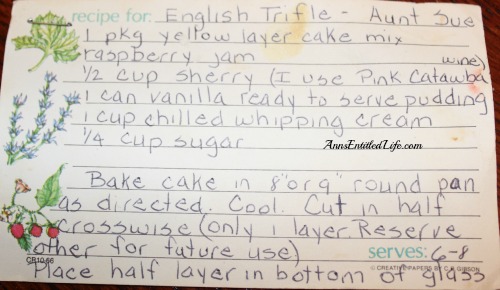 recipe for: English Trifle - Aunt Sue
1 pkg yellow layer cake mix
raspberry jam
wine)
1/2 cup sherry (I use Pink Catawba
1 can vanilla ready to serve pudding
1 cup chilled whipping cream
1/4 cup sugar
AnnsEntitledLife.com
Bake cake in 8" or 9" round pan
as directed. Cool. Cut in half
crosswise (only 1 layer. Reserve
other for future use)
serves: 6-8
CR1046
© CREATIVE PAPERS BY C.R. GIBSON
Place half layer in bottom of glass